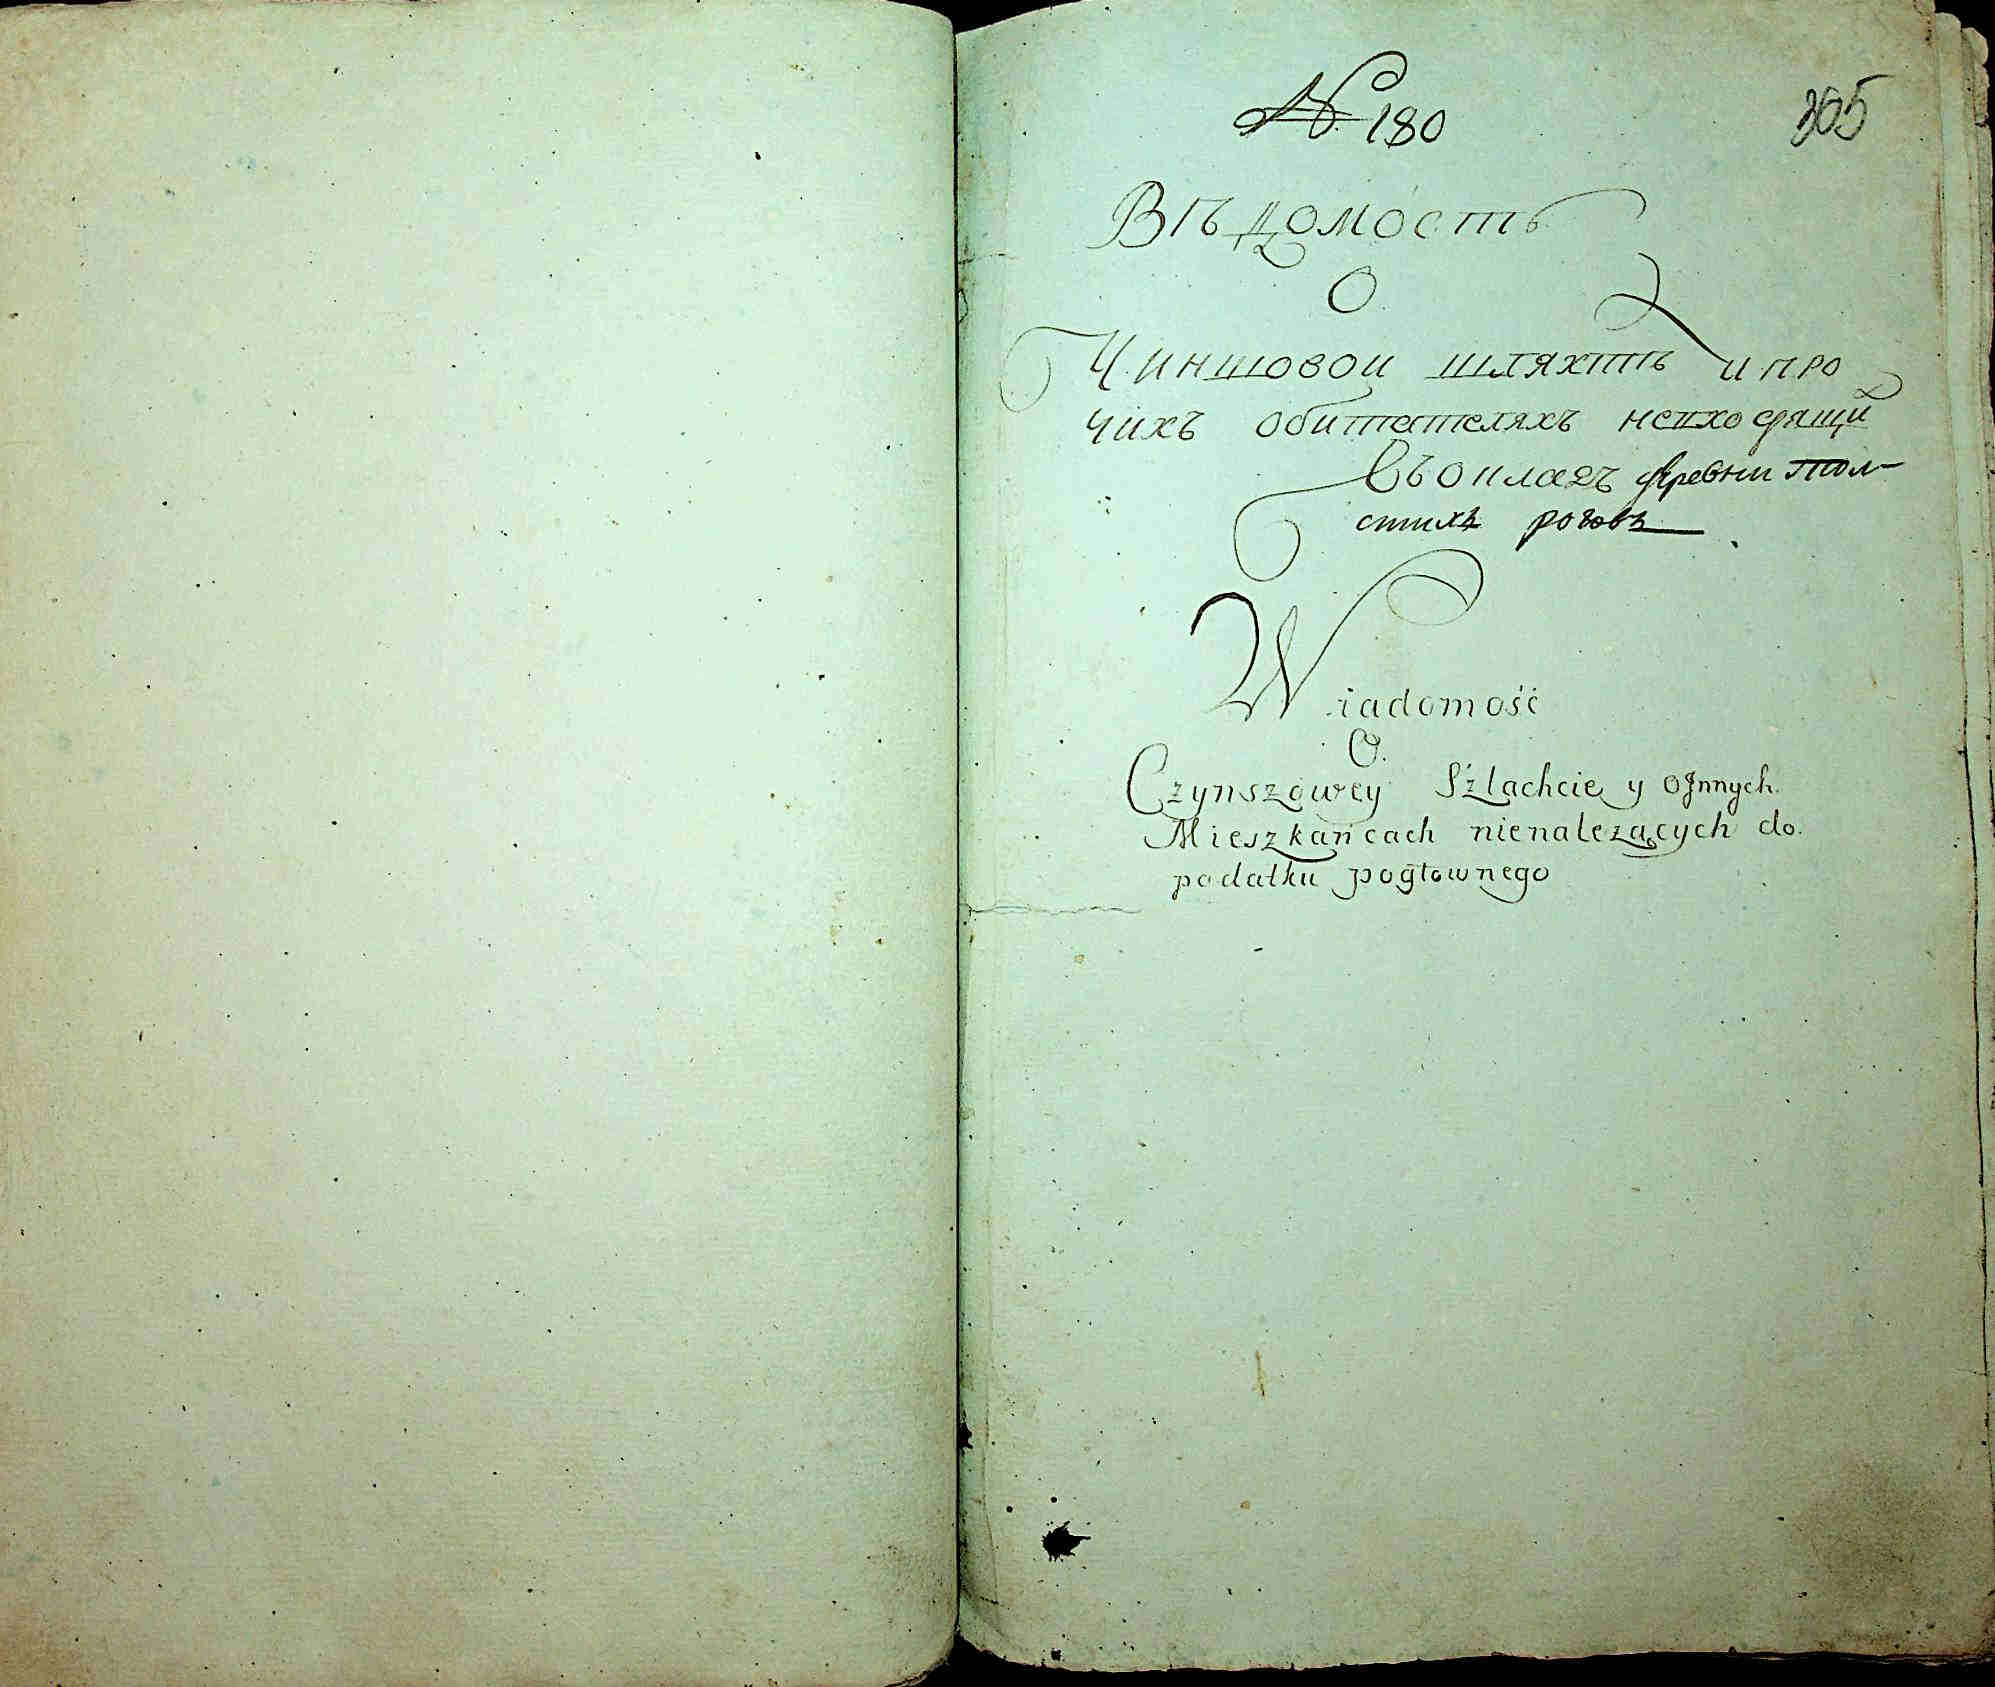 № 180
305
Вѣдомость
О
Чиншовои шляхтѣ и про
чихъ обитателяхъ невходящи
въ окладъ деревни Тол
стихъ роговъ
Wiadomość
O
Czynszowey Szlachcie y o Jnnych
Mieszkańcach nienależących do
podatku pogłownego